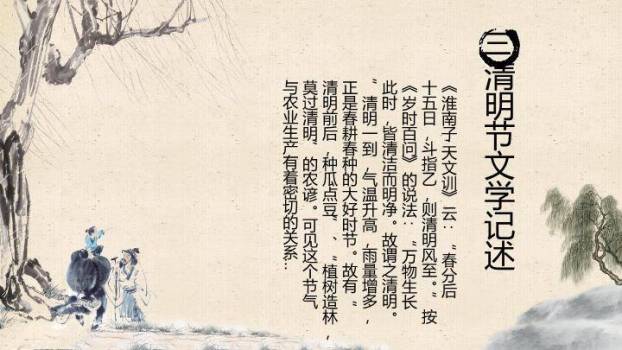 三
清明节文学记述
《淮南子天文训》云：“春分后
十五日，斗指乙，则清明风至。”按
《岁时百问》的说法：“万物生长
此时，皆清洁而明净。故谓之清明。
”清明一到，气温升高，雨量增多，
正是春耕春种的大好时节。故有“
清明前后，种瓜点豆”、“植树造林，
莫过清明”的农谚。可见这个节气
与农业生产有着密切的关系...